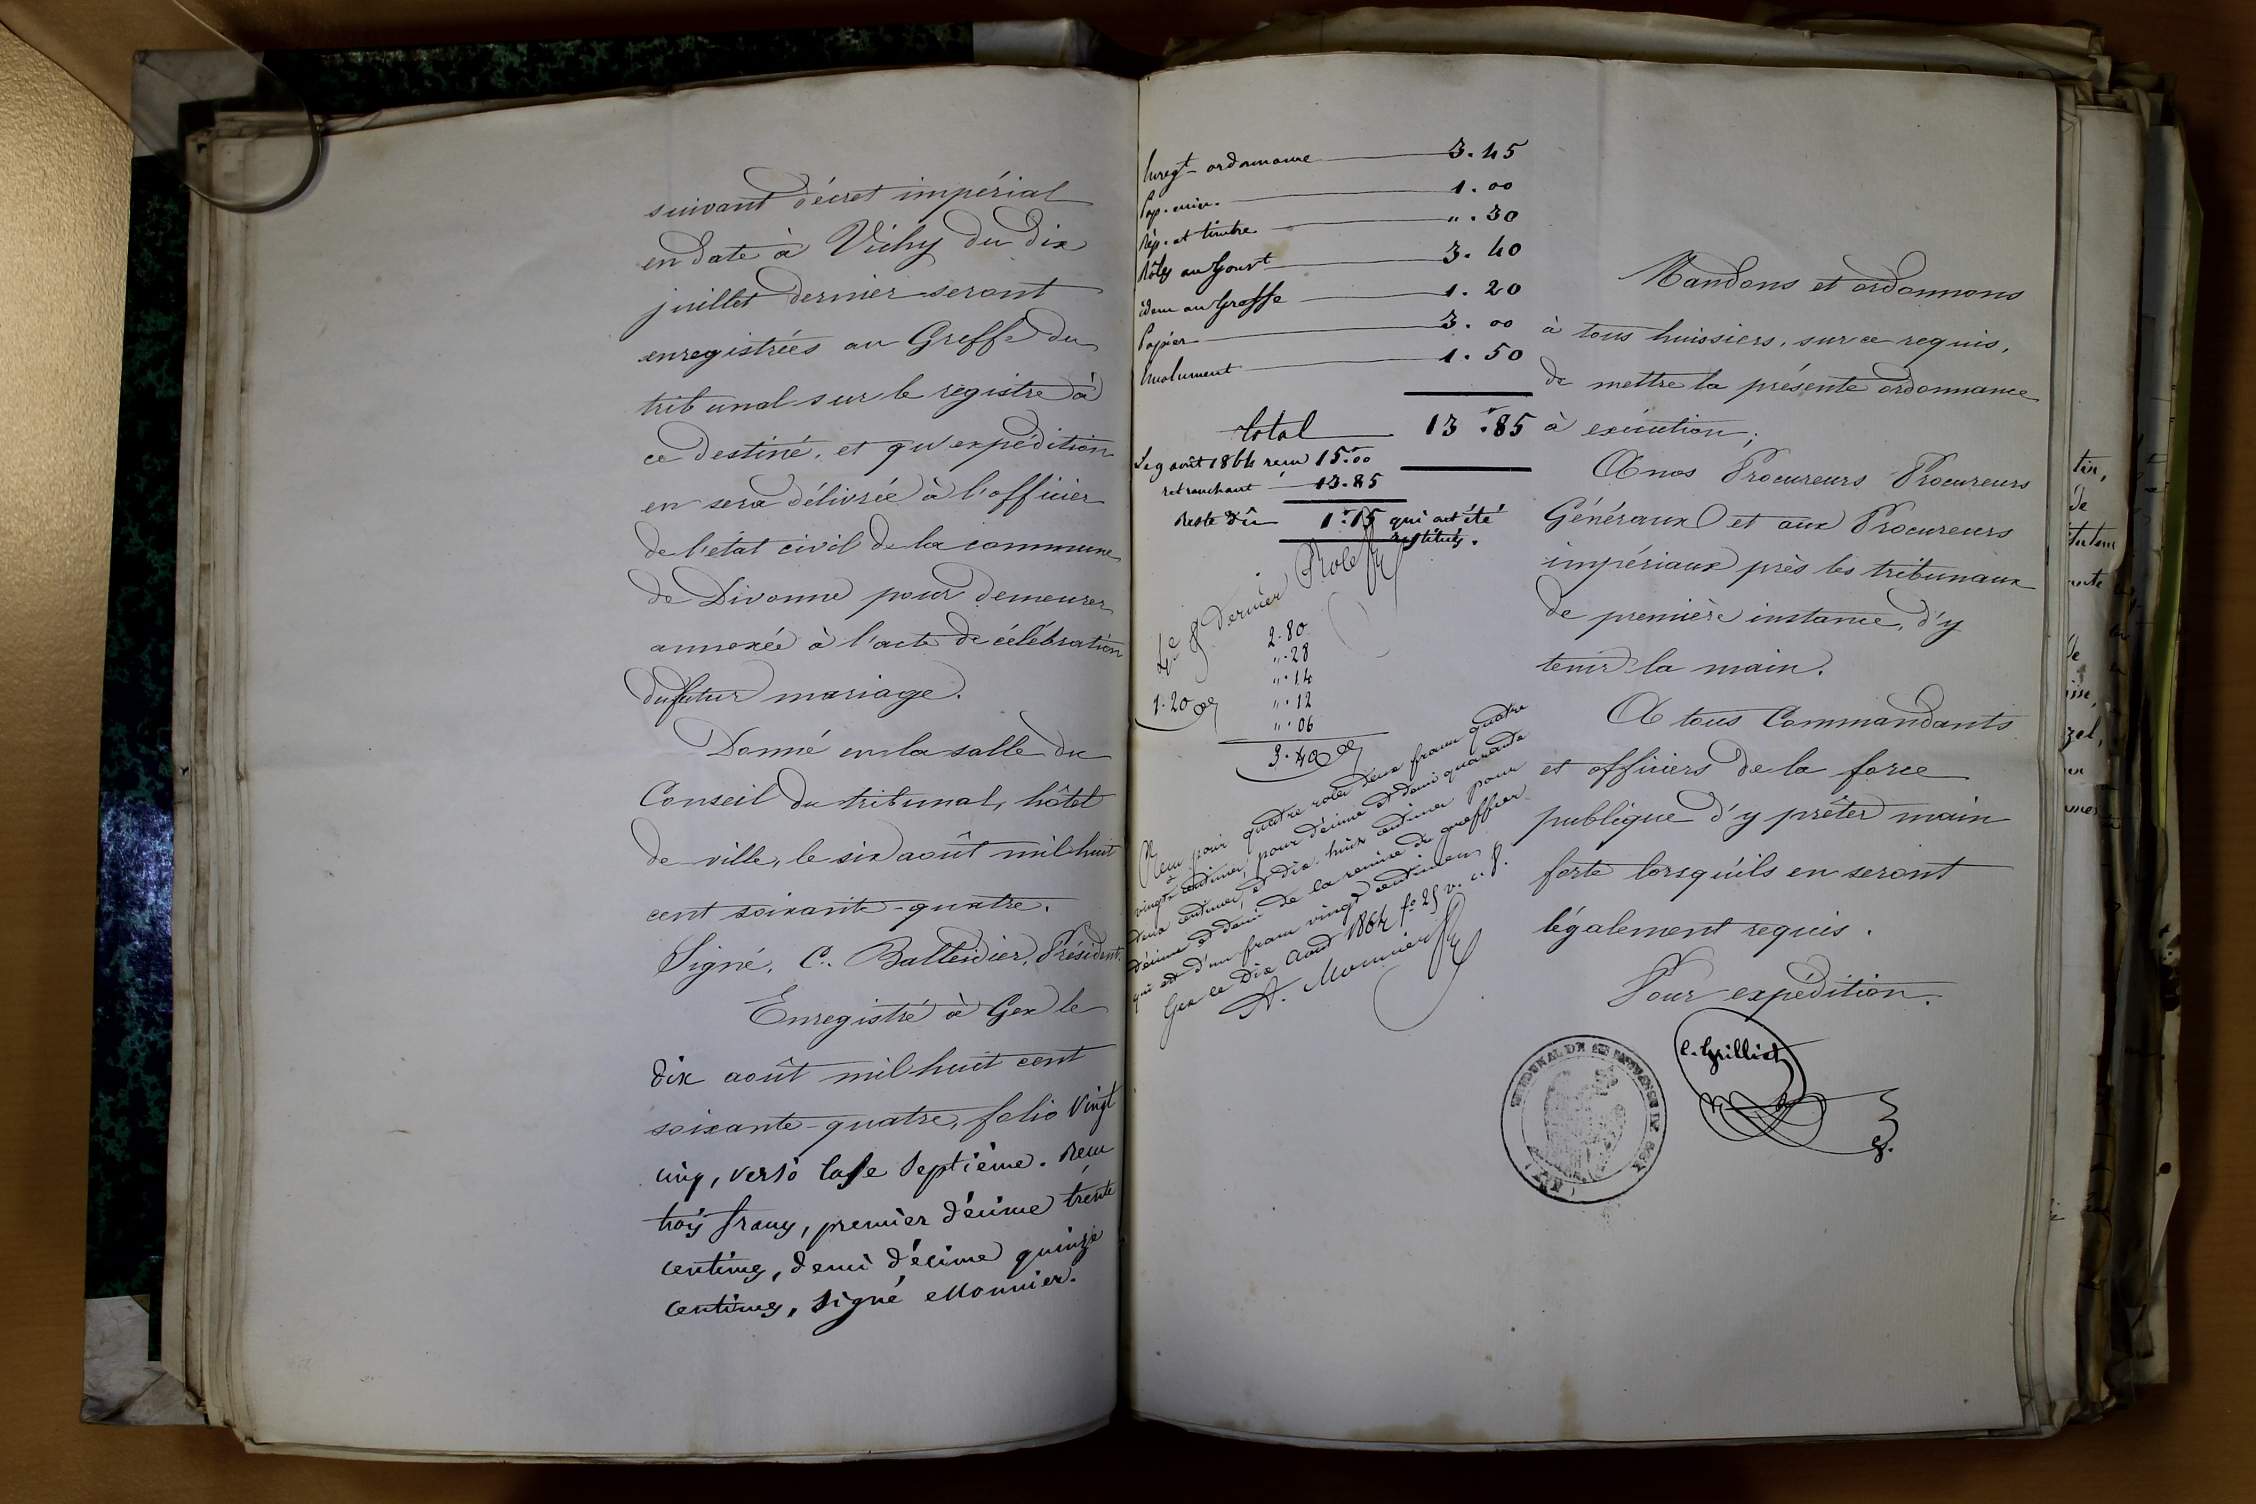 suivant décret impérial
en date à Vichy du dix
juillet dernier seront
enregistrées au Greffe du
tribunal sur le registre à
ce destiné, et qu'expédition
en sera délivrée à l'officier
de l'état civil de la commune
de Divonne pour demeurer
annexée à l'acte de célébration
du futur mariage.
Donné en la salle du
Conseil du tribunal, hôtel
de ville, le six août mil huit
cent soixante-quatre.
Signé, C. Balleidier, Président.
Enregistré à Gex le
dix août mil huit cent
soixante-quatre, folio vingt
cinq, verso case septième. Reçu
trois francs, premier décime trente
centimes, demi décime quinze
centimes, signé Monnier.
Enregt ordonnance 3.45
Pap. min. 1.00
Rép. et timbre ".30
Rôles au Gouvt 3.40
idem au Greffe 1.20
Papier 3.00
Emolument 1.50
total 13.85
Le 9 août 1864 reçu 15.00
retranchant 13.85
Reste dû 1.15 qui ont été
restitués.
4e & dernier Role
2.80
".28
".14
".12
".06
1.20
3.40
Reçu pour quatre roles deux francs quatre
vingts centimes, pour décime et demi quarante
deux centimes, et dix huit centimes pour
décime et demi de la remise du greffier
qui est d'un franc vingt centimes.
Gex ce dix Août 1864 fo 25 v. c. 8.
A. Monnier
Mandons et ordonnons
à tous huissiers, sur ce requis,
de mettre la présente ordonnance
à exécution;
A nos Procureurs Procureurs
Généraux et aux Procureurs
impériaux près les tribunaux
de première instance, d'y
tenir la main.
A tous Commandants
et officiers de la force
publique d'y prêter main
forte lorsqu'ils en seront
légalement requis.
Pour expédition.
C. Grilliet
g.
TRIBUNAL DE 1ère INSTANCE DE GEX
(AIN)